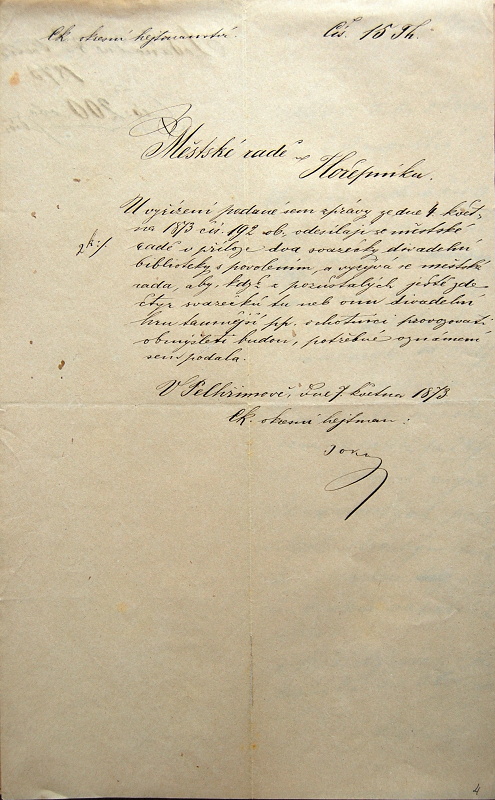 Ck. okresní hejtmanství.
Čís. 15 Th.
Městské radě
v Hořepníku.
U vyřízení podané sem zprávy ze dne 4. květ-
na 1873 čís. 192 ob. odesílají se městské
radě v příloze dva svazečky divadelní
biblioteky s povolením, a vyzývá se městská
rada, aby, když z pozůstalých ještě zde
čtyr svazečků tu neb onu divadelní
hru tamnější pp. ochotníci provozovati
obmýšleti budou, potřebné oznámení
sem podala.
V Pelhřimově, dne 7. května 1873
Ck. okresní hejtman:
4